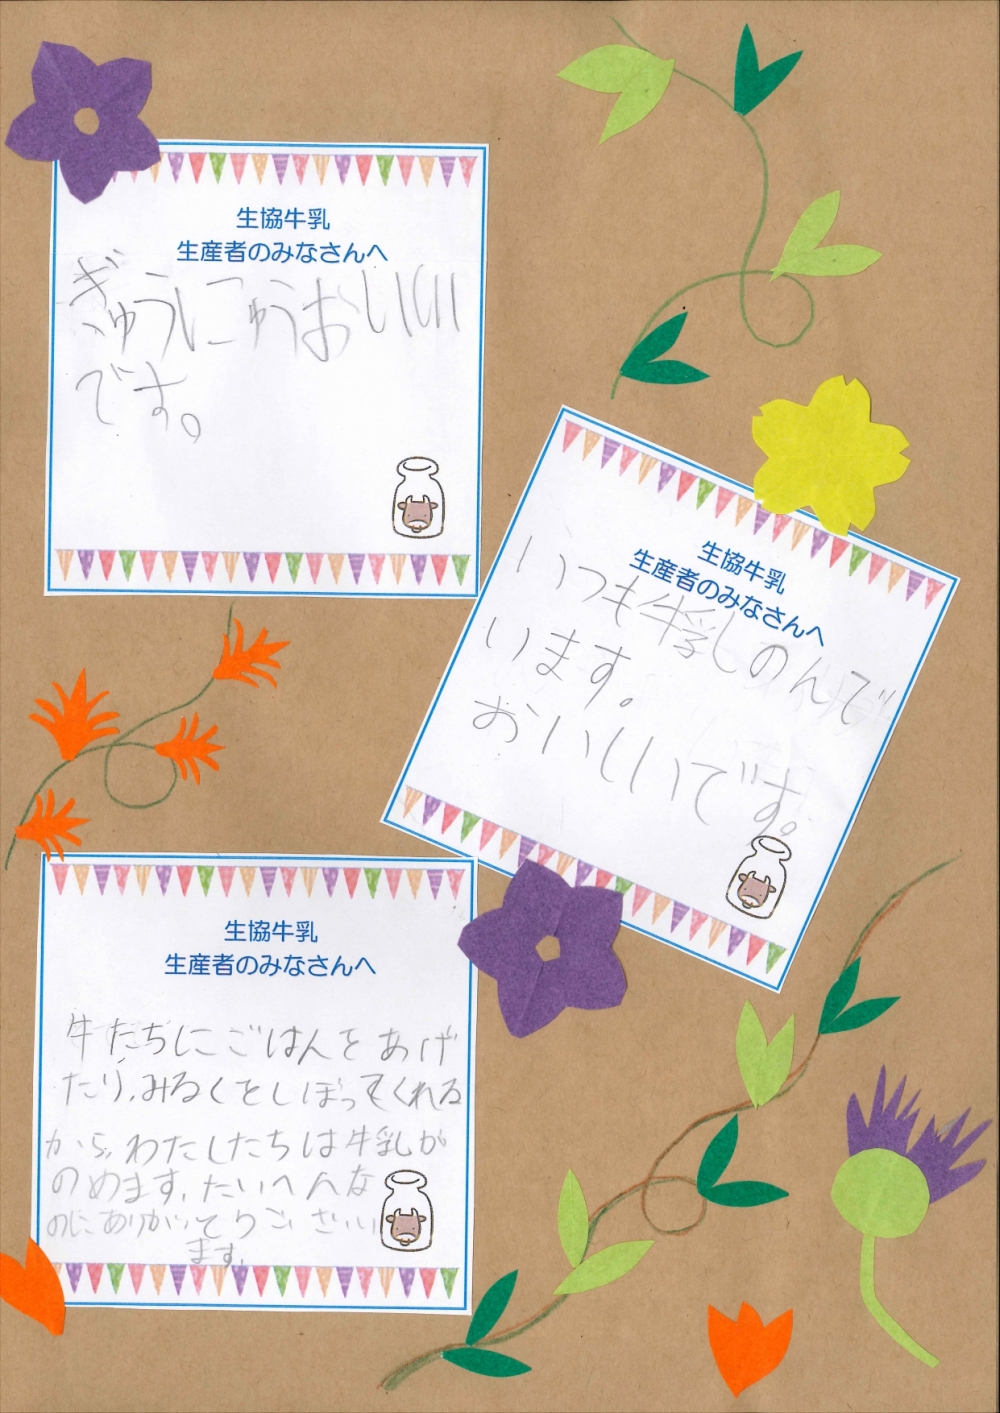 生協牛乳
生産者のみなさんへ
ぎゅうにゅうおいしい
です。
生協牛乳
生産者のみなさんへ
いつも牛乳しのんで
います。
おいしいです。
生協牛乳
生産者のみなさんへ
牛たちにごはんをあげ
たり、みるくをしぼってくれる
から、わたしたちは牛乳が
のめます。たいへんな
のにありがとうございい
ます。